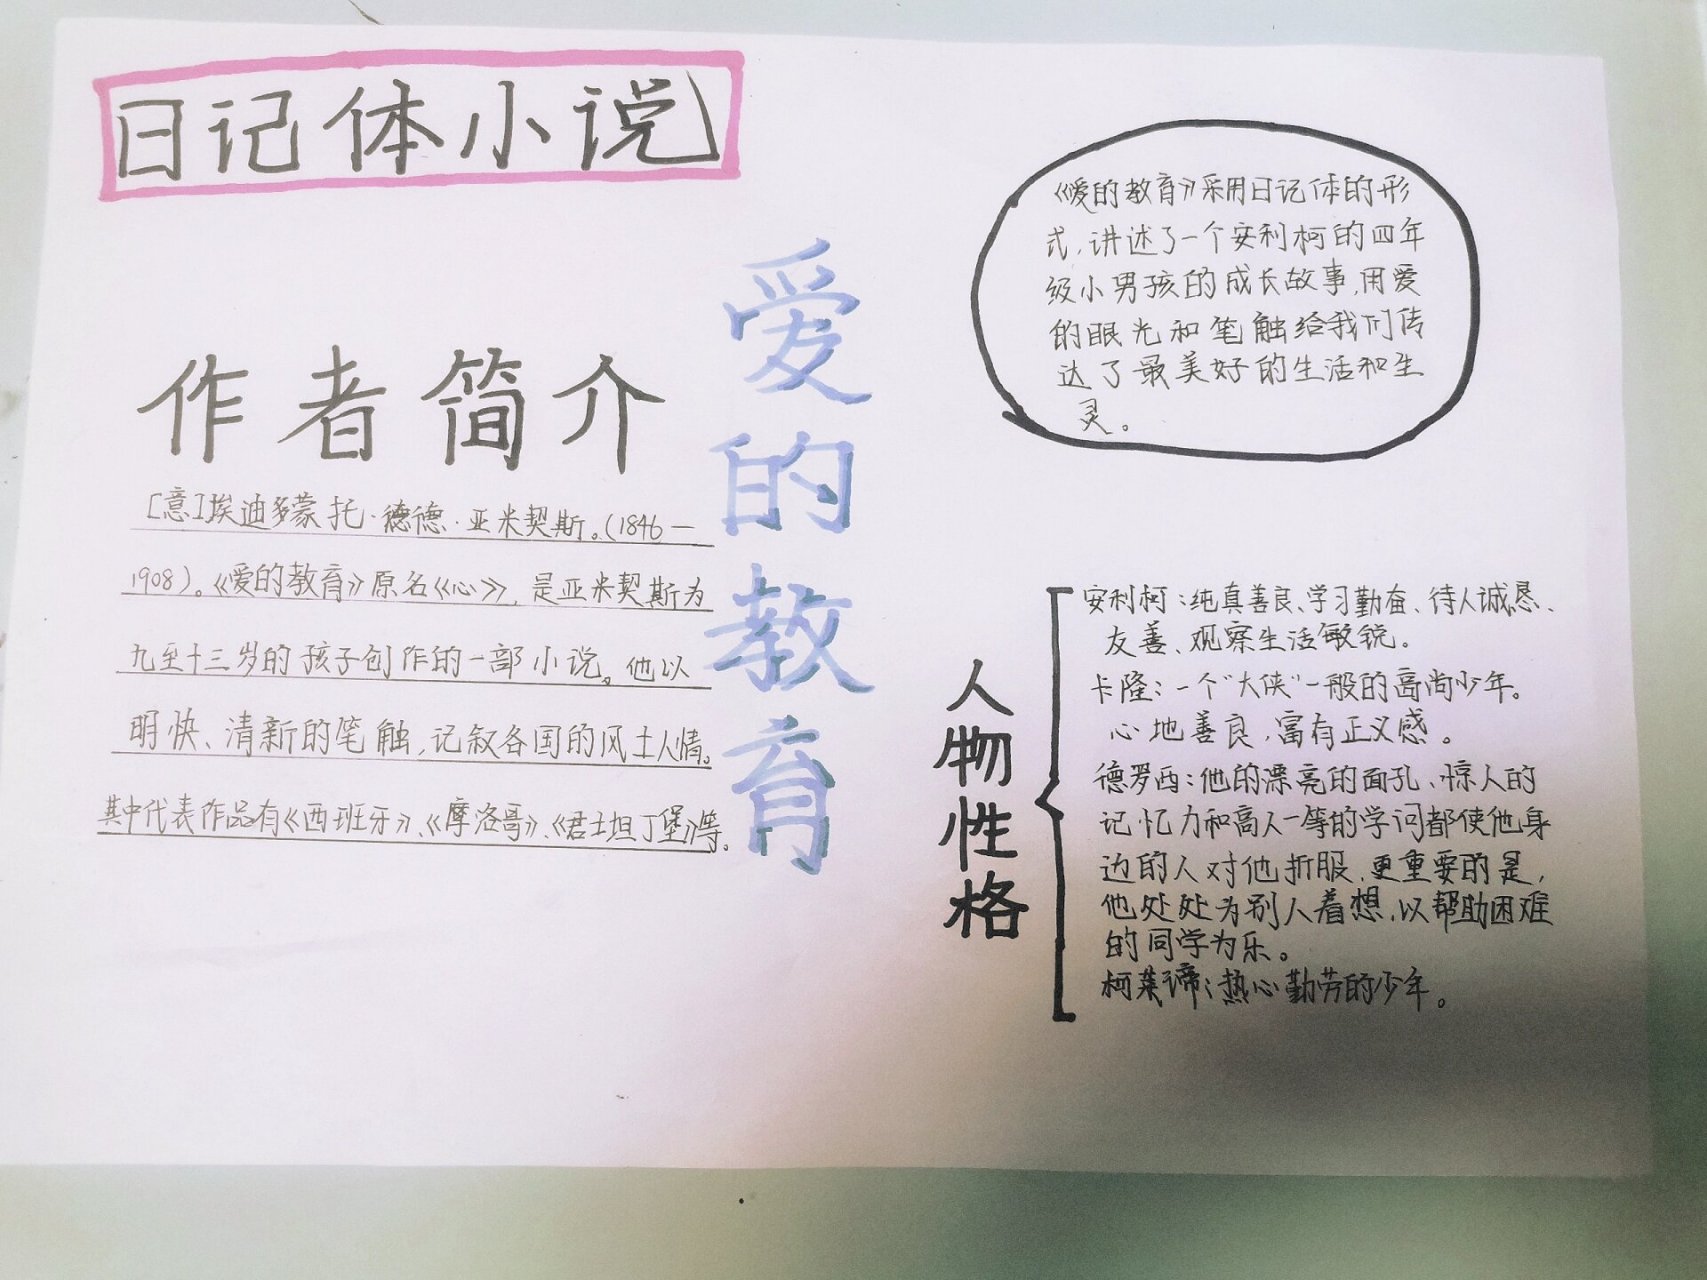 日记体小说
作者简介
[意]埃迪多蒙托·德德·亚米契斯。(1846—
1908)。《爱的教育》原名《心》,是亚米契斯为
九至十三岁的孩子创作的一部小说。他以
明快、清新的笔触,记叙各国的风土人情。
其中代表作品有《西班牙》、《摩洛哥》、《君士坦丁堡》等。
爱的教育
《爱的教育》采用日记体的形
式,讲述了一个安利柯的四年
级小男孩的成长故事,用爱
的眼光和笔触给我们传
达了最美好的生活和生
灵。
人物性格
安利柯:纯真善良、学习勤奋、待人诚恳、
友善、观察生活敏锐。
卡隆:一个“大侠”一般的高尚少年。
心地善良,富有正义感。
德罗西:他的漂亮的面孔、惊人的
记忆力和高人一等的学问都使他身
边的人对他折服,更重要的是,
他处处为别人着想,以帮助困难
的同学为乐。
柯莱谛:热心勤劳的少年。